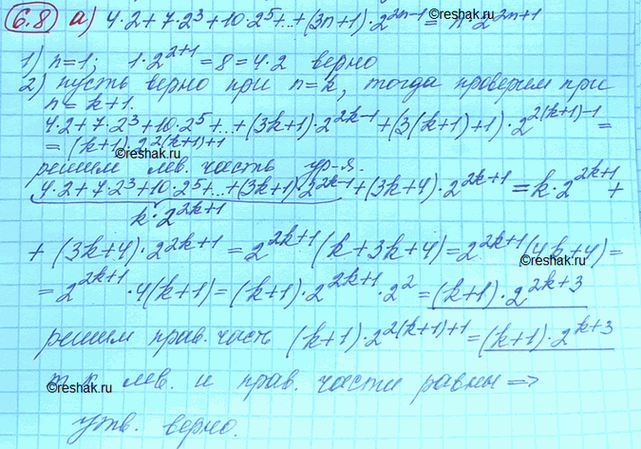 6.8 а) 4·2+7·2³+10·2⁵+..+(3n+1)·2²ⁿ⁻¹= n·2²ⁿ⁺¹
©reshak.ru
1) n=1; 1·2²⁺¹=8=4·2 верно
2) пусть верно при n=k, тогда проверим при
n=k+1.
4·2+7·2³+10·2⁵+..+(3k+1)·2²ᵏ⁻¹+(3(k+1)+1)·2²⁽ᵏ⁺¹⁾⁻¹=
=(k+1)·2²⁽ᵏ⁺¹⁾⁺¹
©reshak.ru
решим лев. часть ур-я.
4·2+7·2³+10·2⁵+..+(3k+1)·2²ᵏ⁻¹+(3k+4)·2²ᵏ⁺¹=k·2²ᵏ⁺¹+
k·2²ᵏ⁺¹
+(3k+4)·2²ᵏ⁺¹=2²ᵏ⁺¹(k+3k+4)=2²ᵏ⁺¹(4k+4)=
=2²ᵏ⁺¹·4(k+1)=(k+1)·2²ᵏ⁺¹·2²=(k+1)·2²ᵏ⁺³
решим прав. часть (k+1)·2²⁽ᵏ⁺¹⁾⁺¹=(k+1)·2ᵏ⁺³
©reshak.ru
т.к лев. и прав. части равны =>
утв. верно.